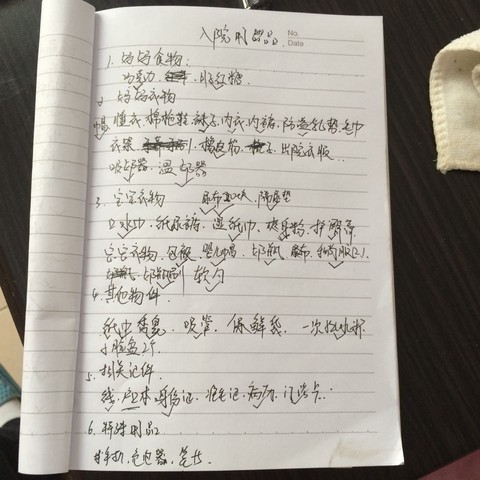 入院用品 No.
Date
1. 妈妈食物:
巧克力, 红糖
2 妈妈衣物
帽 睡衣, 棉拖鞋, 袜子, 内衣, 内裤, 防溢乳垫, 毛巾
衣架, 橡皮筋, 出院衣服..
吸奶器, 温奶器
3. 宝宝衣物 尿布 隔尿垫
口水巾, 纸尿裤, 湿纸巾, 爽身粉, 护臀膏
宝宝衣物, 包被, 婴儿帽, 奶瓶,
奶瓶刷 软勺
4. 其他物件.
纸巾 吸管, 保鲜袋, 一次性水杯
小脸盆2个
5. 相关证件.
钱, 户口本, 身份证, 准生证, 病历, 门诊卡..
6. 特殊用品
手机, 充电器,